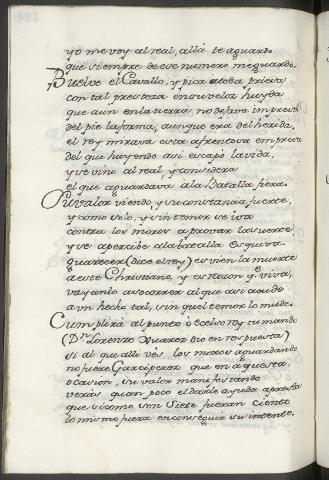 yo me voy al real, alla te aguardo
que siempre de ese numero me guardo.
Buelve el Cavallo, y pica a toda prieva
con tal presteza en su veloz huyda
que aun en la tierra no dejava impresa
del pie la forma, aunque era del herida,
el rey mirava esta afrentosa empresa
del que huyendo asi escapó la vida,
y se vino al real, y considera
el que aguardava a la Batalla fiera.
Su valor viendo, y su constancia fuerte,
y como solo, y sin temor se iva
contra los moros a provar la suerte
y se apercibe a la batalla esquiva.
guarecer (dice el rey) es vien la muerte
a este Christiano, y es razon q.e viva,
vayanlo a socorrer al que asi acude
a un hecho tal, sin que el temor lo mude.
Cumplirá al punto o ecelso rey tu mando
(D.n Lorenzo Xuarez dio en respuesta)
si al que allo vés, los moros aguardando
no fuere Garciperez que en aquesta
ocasion, su valor manifestando
verás quan poco el darle ayuda apresta
que si como son Siete fueran ciento
lo mismo fuera en conseguir su intento.